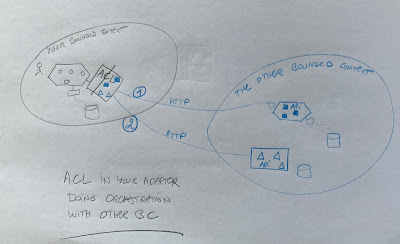 YOUR BOUNDED CONTEXT
ACL
1
HTTP
2
HTTP
THE OTHER BOUNDED CONTEXT
API
API
ACL IN YOUR ADAPTER
DOING ORCHESTRATION
WITH OTHER BC